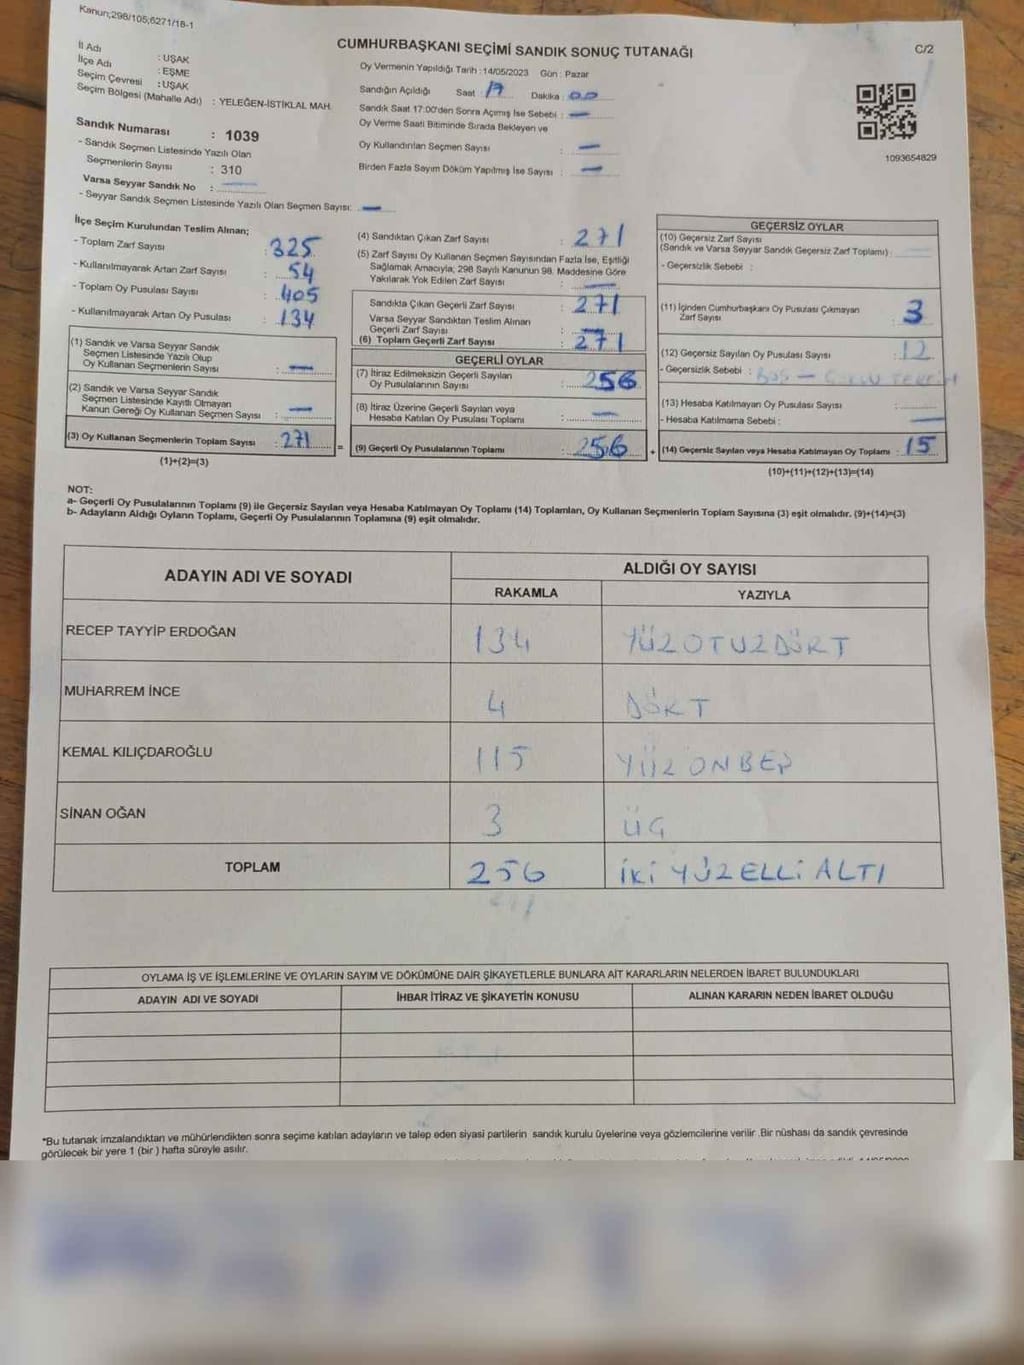 Kanun;298/105;6271/18-1
CUMHURBAŞKANI SEÇİMİ SANDIK SONUÇ TUTANAĞI
C/2
İl Adı : UŞAK
İlçe Adı : EŞME
Seçim Çevresi : UŞAK
Seçim Bölgesi (Mahalle Adı) : YELEĞEN-İSTİKLAL MAH.
Sandık Numarası : 1039
- Sandık Seçmen Listesinde Yazılı Olan
Seçmenlerin Sayısı : 310
Varsa Seyyar Sandık No :
- Seyyar Sandık Seçmen Listesinde Yazılı Olan Seçmen Sayısı:
Oy Vermenin Yapıldığı Tarih : 14/05/2023 Gün : Pazar
Sandığın Açıldığı Saat : 17 Dakika : 00
Sandık Saat 17:00'den Sonra Açımış İse Sebebi :
Oy Verme Saati Bitiminde Sırada Bekleyen ve
Oy Kullandırılan Seçmen Sayısı :
Birden Fazla Sayım Döküm Yapılmış İse Sayısı :
1093654829
İlçe Seçim Kurulundan Teslim Alınan;
- Toplam Zarf Sayısı : 325
- Kullanılmayarak Artan Zarf Sayısı : 54
- Toplam Oy Pusulası Sayısı : 405
- Kullanılmayarak Artan Oy Pusulası : 134
(1) Sandık ve Varsa Seyyar Sandık
Seçmen Listesinde Yazılı Olup
Oy Kullanan Seçmenlerin Sayısı :
(2) Sandık ve Varsa Seyyar Sandık
Seçmen Listesinde Kayıtlı Olmayan
Kanun Gereği Oy Kullanan Seçmen Sayısı :
(3) Oy Kullanan Seçmenlerin Toplam Sayısı : 271 =
(1)+(2)=(3)
(4) Sandıktan Çıkan Zarf Sayısı : 271
(5) Zarf Sayısı Oy Kullanan Seçmen Sayısından Fazla İse, Eşitliği
Sağlamak Amacıyla; 298 Sayılı Kanunun 98. Maddesine Göre
Yakılarak Yok Edilen Zarf Sayısı :
Sandıkta Çıkan Geçerli Zarf Sayısı : 271
Varsa Seyyar Sandıktan Teslim Alınan
Geçerli Zarf Sayısı :
(6) Toplam Geçerli Zarf Sayısı : 271
GEÇERLİ OYLAR
(7) İtiraz Edilmeksizin Geçerli Sayılan
Oy Pusulalarının Sayısı : 256
(8) İtiraz Üzerine Geçerli Sayılan veya
Hesaba Katılan Oy Pusulası Toplamı :
(9) Geçerli Oy Pusulalarının Toplamı : 256 +
GEÇERSİZ OYLAR
(10) Geçersiz Zarf Sayısı
(Sandık ve Varsa Seyyar Sandık Geçersiz Zarf Toplamı) :
- Geçersizlik Sebebi :
(11) İçinden Cumhurbaşkanı Oy Pusulası Çıkmayan
Zarf Sayısı : 3
(12) Geçersiz Sayılan Oy Pusulası Sayısı : 12
- Geçersizlik Sebebi : BOŞ -
(13) Hesaba Katılmayan Oy Pusulası Sayısı :
- Hesaba Katılmama Sebebi :
(14) Geçersiz Sayılan veya Hesaba Katılmayan Oy Toplamı : 15
(10)+(11)+(12)+(13)=(14)
NOT:
a- Geçerli Oy Pusulalarının Toplamı (9) ile Geçersiz Sayılan veya Hesaba Katılmayan Oy Toplamı (14) Toplamları, Oy Kullanan Seçmenlerin Toplam Sayısına (3) eşit olmalıdır. (9)+(14)=(3)
b- Adayların Aldığı Oyların Toplamı, Geçerli Oy Pusulalarının Toplamına (9) eşit olmalıdır.
ADAYIN ADI VE SOYADI
ALDIĞI OY SAYISI
RAKAMLA YAZIYLA
RECEP TAYYİP ERDOĞAN 134 YÜZOTUZDÖRT
MUHARREM İNCE 4 DÖRT
KEMAL KILIÇDAROĞLU 115 YÜZONBEŞ
SİNAN OĞAN 3 ÜÇ
TOPLAM 256 İKİ YÜZELLİ ALTI
OYLAMA İŞ VE İŞLEMLERİNE VE OYLARIN SAYIM VE DÖKÜMÜNE DAİR ŞİKAYETLERLE BUNLARA AİT KARARLARIN NELERDEN İBARET BULUNDUKLARI
ADAYIN ADI VE SOYADI İHBAR İTİRAZ VE ŞİKAYETİN KONUSU ALINAN KARARIN NEDEN İBARET OLDUĞU
*Bu tutanak imzalandıktan ve mühürlendikten sonra seçime katılan adayların ve talep eden siyasi partilerin sandık kurulu üyelerine veya gözlemcilerine verilir .Bir nüshası da sandık çevresinde
görülecek bir yere 1 (bir ) hafta süreyle asılır.